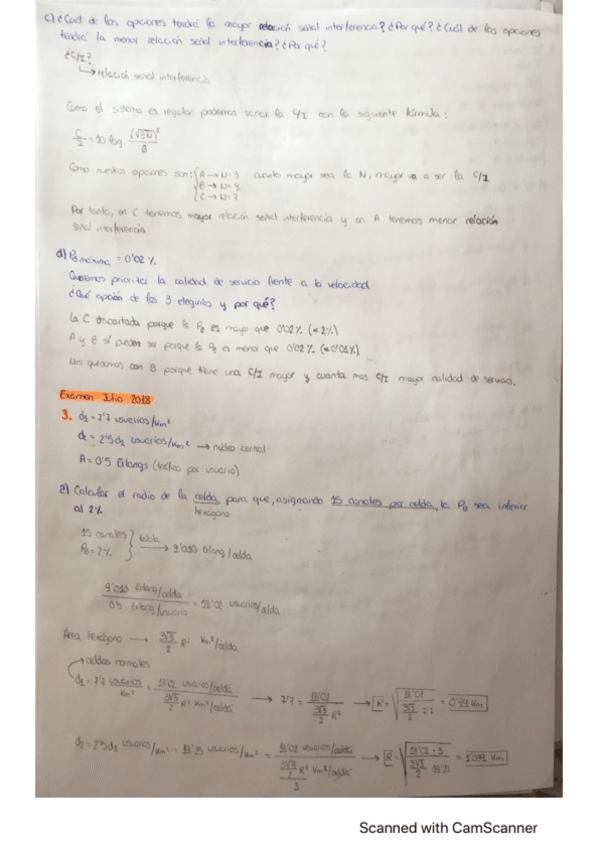 c) ¿Cuál de las opciones tendrá la mayor relación señal interferencia? ¿Por qué? ¿Cuál de las opciones
tendrá la menor relación señal interferencia? ¿Por qué?
¿C/I?
↳ relación señal interferencia
Como el sistema es regular podemos sacar la C/I con la siguiente fórmula:
C/I = 10 log (√3N)
Como nuestras opciones son: { A → N=3 cuanto mayor sea la N, mayor va a ser la C/I
B → N=4
C → N=7
Por tanto, en C tenemos mayor relación señal interferencia y en A tenemos menor relación
señal interferencia
d) PB máxima = 0'02 %.
Queremos priorizar la calidad de servicio frente a la velocidad
¿Qué opción de las 3 elegirías y por qué?
La C descartada porque la PB es mayor que 0'02% (=2%)
A y B sí pueden ser porque la PB es menor que 0'02%
Nos quedamos con B porque tiene una C/I mayor y cuanta mas C/I mayor calidad de servicio.
Examen Julio 2018
3. d1 = 7'7 usuarios/km²
d2 = 2'5d1 usuarios/km² → núcleo central
A = 0'5 Erlangs (tráfico por usuario)
a) Calcular el radio de la celda, para que, asignando 15 canales por celda, la PB sea inferior
al 2%
hexágono
15 canales } tabla
PB = 2% → 9'010 Erlang/celda
9'010 Erlang/celda / 0'5 Erlang/usuario = 18'02 usuarios/celda
Área hexágono → 3√3/2 R² km²/celda
celdas normales
d1 = 7'7 usuarios/km² = 18'02 usuarios/celda / 3√3/2 R² km²/celda → 7'7 = 18'02 / 3√3/2 R² → R = √(18'02 / 3√3/2 7'7) = 0'94 km
d2 = 2'5d1 usuarios/km² = 19'25 usuarios/km² = 18'02 usuarios/celda / 3√3/2 R² km²/celda / 3 → R = √(18'02 · 3 / 3√3/2 19'25) = km
Scanned with CamScanner